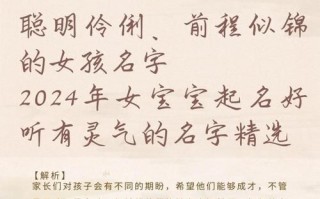 聪明伶俐、前程似锦
的女孩名字
2024年女宝宝起名好
听有灵气的名字精选
【解析】
家长们对孩子会有不同的期盼，希望他们能够成才，不管